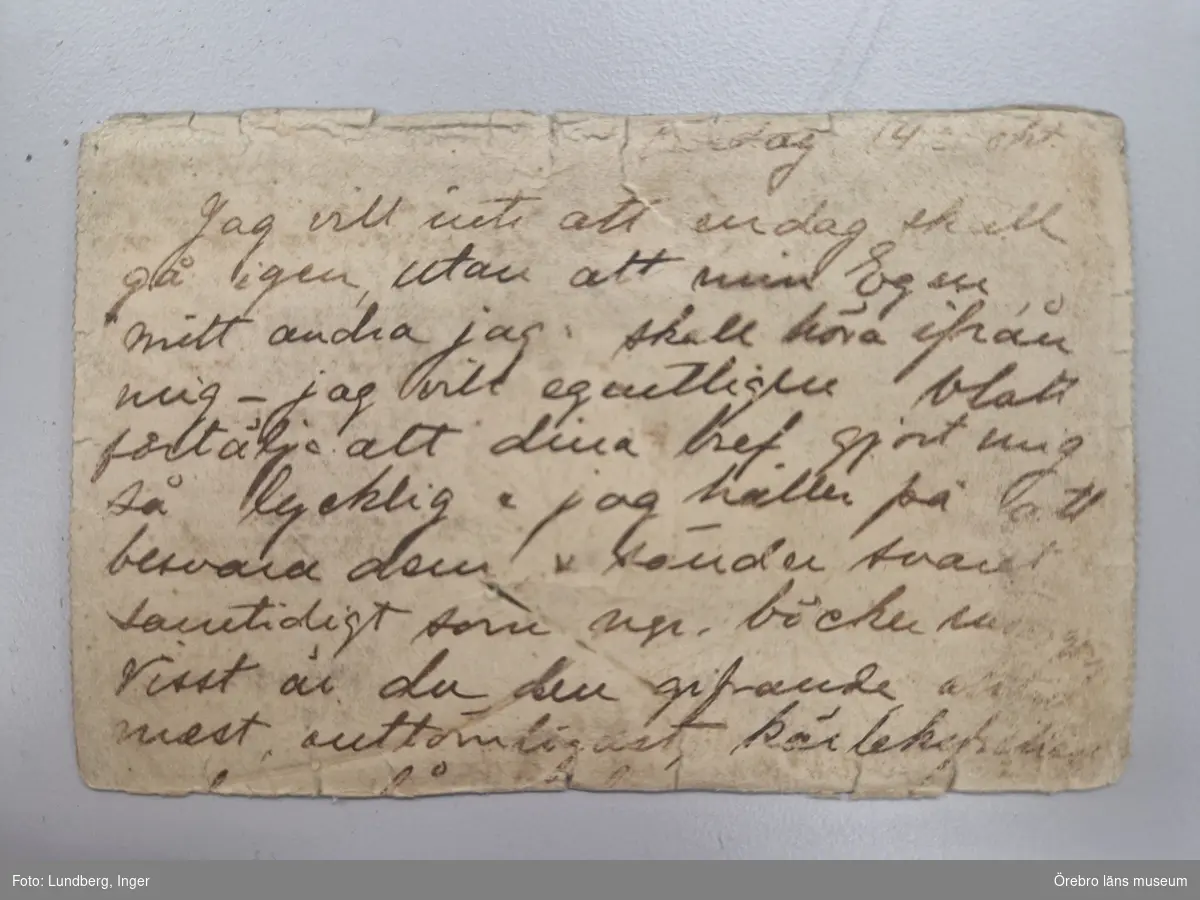 dag 14 okt.
Jag vill inte att en dag skall
gå igen, utan att min Egen,
mitt andra jag. skall höra ifrån
mig – jag vill egentligen blott
förtälja att dina bref gjort mig
så lycklig & jag håller på att
besvara dem & sänder svaret
samtidigt som ngr. böcker
Visst är du den gifvande
mest, outtömligast,
Foto: Lundberg, Inger
Örebro läns museum